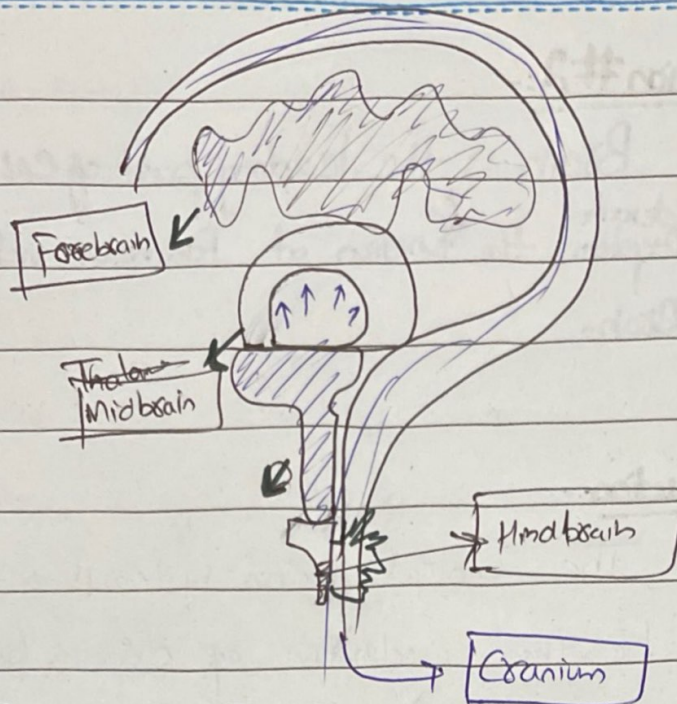 Forebrain
Thala
Midbrain
Hindbrain
Cranium